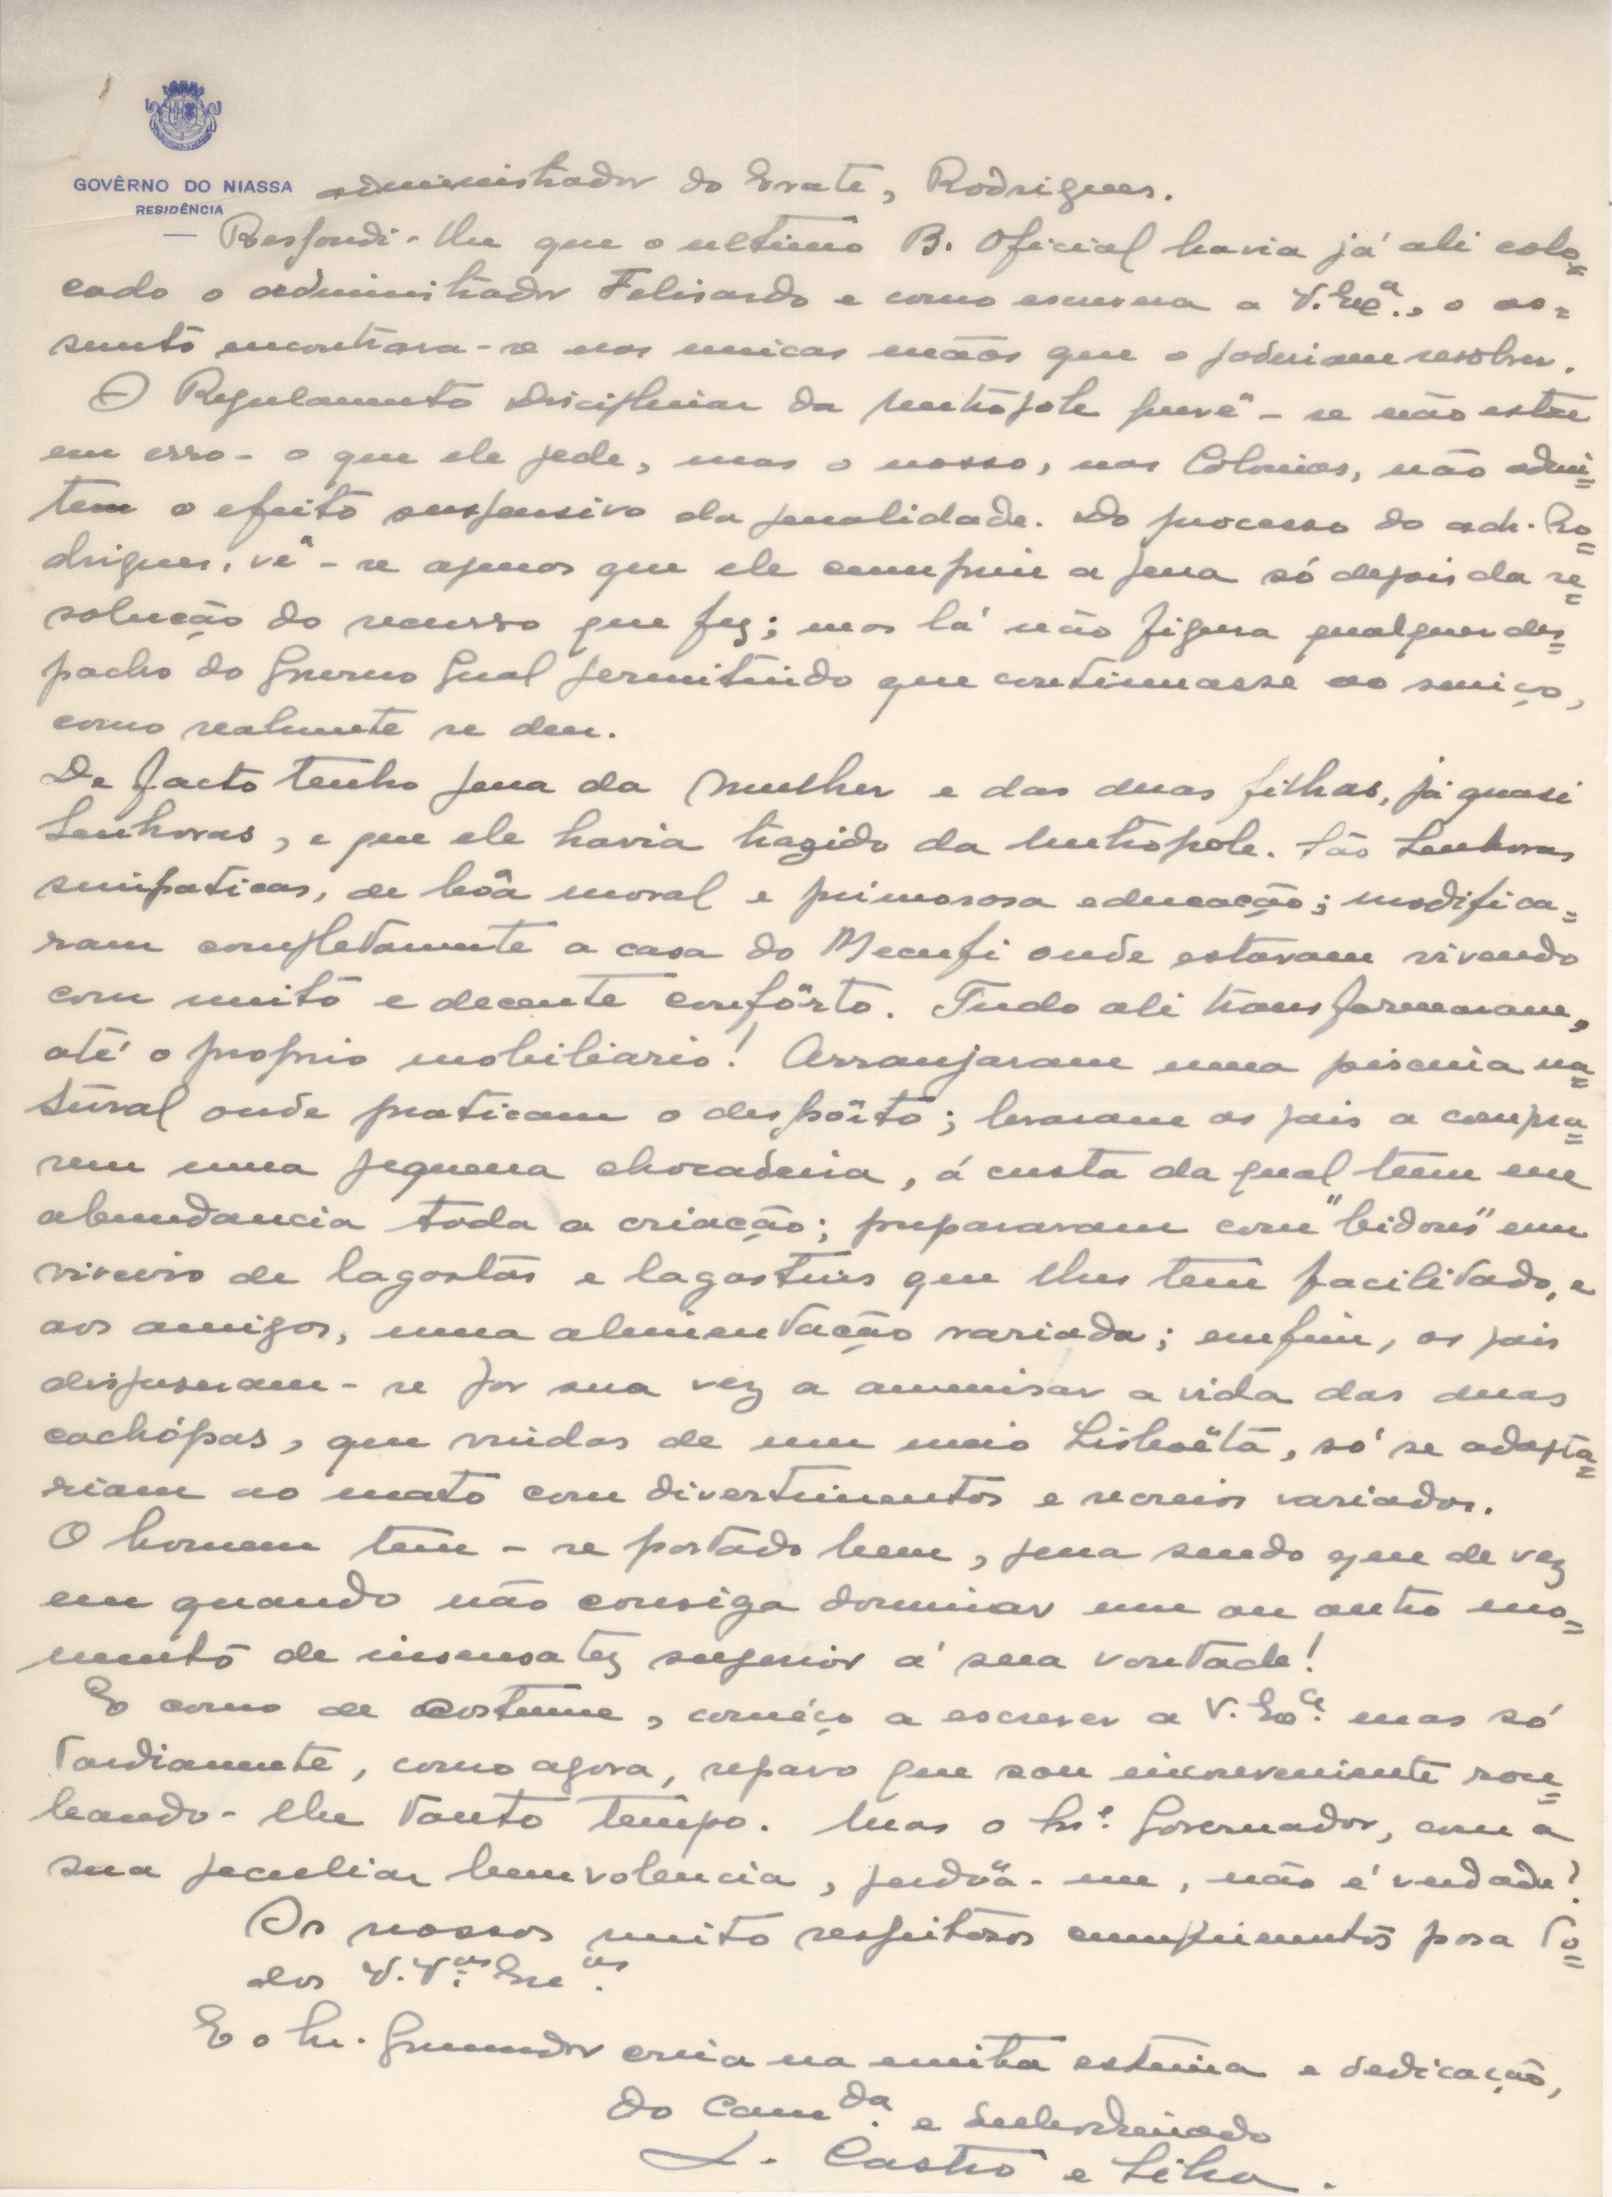 GOVÊRNO DO NIASSA
RESIDÊNCIA
administrador do Erate, Rodrigues.
Respondi-lhe que o ultimo B. Oficial havia já ali colo=
cado o administrador Felisardo e como escrevera a V. Exª., o as=
sunto encontrava-se nas unicas mãos que o poderiam resolver.
O Regulamento Disciplinar da Metrópole prevê - se não estou
em erro - o que ele pede, mas o nosso, nas Colonias, não admi=
tem o efeito suspensivo da penalidade. Do processo do adm. Ro=
drigues, vê-se apenas que ele cumpriu a pena só depois da re=
solução do recurso que fez; mas lá não figura qualquer des=
pacho do Governo Geral permitindo que continuasse ao serviço,
como realmente se deu.
De facto tenho pena da mulher e das duas filhas, já quasi
Senhoras, e que ele havia trazido da Metropole. São Senhoras
simpaticas, de bôa moral e primorosa educação; modifica=
ram completamente a casa do Mecufi onde estavam vivendo
com muito e decente confôrto. Tudo ali transformaram,
até o proprio mobiliario! Arranjaram uma piscina na=
tural onde praticam o despôrto; levaram os pais a compra=
rem uma pequena chocadeira, á custa da qual teem em
abundancia toda a criação; prepararam com "bidons" um
viveiro de lagostas e lagostins que lhes tem facilitado, e
aos amigos, uma alimentação variada; emfim, os pais
dispuseram-se por sua vez a amenisar a vida das duas
cachópas, que vindas de um meio Lisboêta, só se adapta=
riam ao mato com divertimentos e recreios variados.
O homem tem-se portado bem, pena sendo que de vez
em quando não consiga dominar um ou outro mo=
mento de insensatez superior á sua vontade!
E como de costume, começo a escrever a V. Exª. mas só
tardiamente, como agora, reparo que sou inconveniente rou=
bando-lhe tanto tempo. Mas o Snr. Governador, com a
sua peculiar benevolencia, perdôa-me, não é verdade?
Os nossos muito respeitosos cumprimentos para to=
dos V.Vas. Excas.
E o Snr. Governador creia na muita estima e dedicação,
do Camda. e subordinado
L. Castro e Silva.